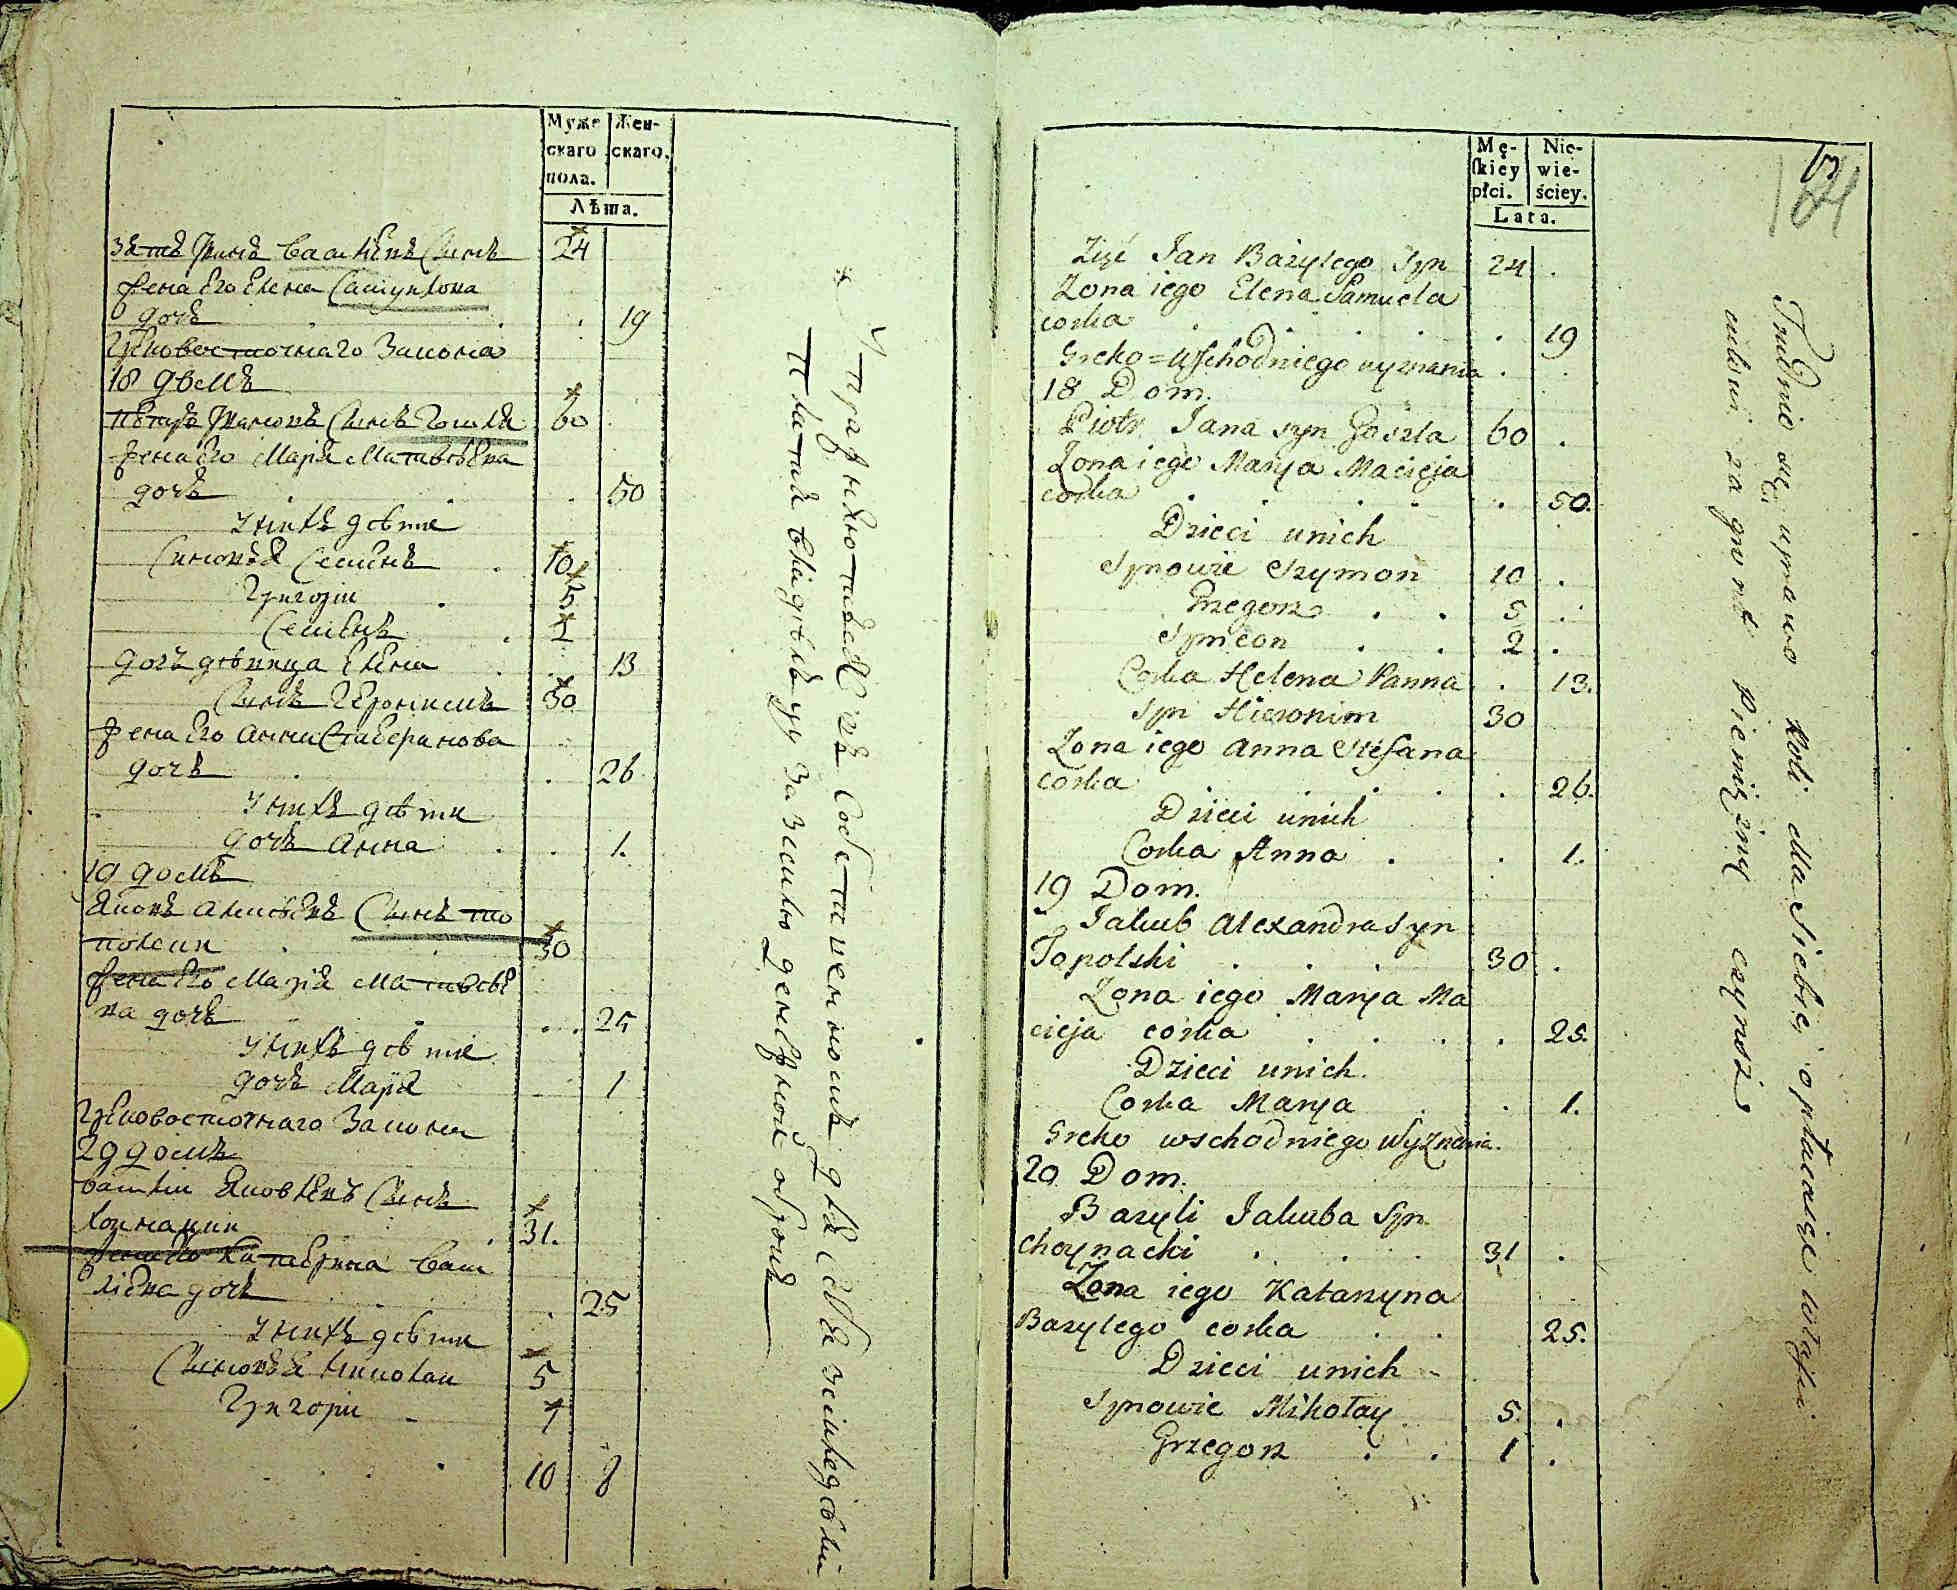 Муже
скаго
пола.
Жен-
скаго.
Лѣта.
зять Иванъ Васильевъ Сынъ 24
жена Его Елена Самуилова
дочь . . . 19
Грековосточнаго Закона
18 домъ
Петръ Ивановъ Сынъ Гошля 60
жена Его Марія Матвѣева
дочь . . . 50
У нихъ дѣти
Сыновья Семенъ . 10
Григори . 5
Семенъ . 2
дочь дѣвица Елена . . 13
Сынъ Геронимъ 30
жена Его Анна Стаферанова
дочь . . 26
У нихъ дѣти
дочь Анна . . 1.
19 домъ
Яковъ Алексѣевъ Сынъ то
полски . . 30
жена Его Марія Матвѣе
ва дочь . . . 25
У нихъ дѣти
дочь Марія . 1
Грековосточнаго Закона
20 домъ
Василіи Яковлевъ Сынъ
хоинацки . 31.
жена Его Катерина Васи
лѣва дочь . 25
У нихъ дѣти
Сыновья Николаи 5
Григори 1
10 8
Упражняются въ Собственномъ для себя земледѣліи
платя владѣльцу за землю денежной оброкъ
Mę-
skiey
płci.
Nie-
wie-
ściey.
Lata.
13
Zięć Jan Bazylego Syn 24 .
Zona iego Elena Samuela
corka . . . . 19
Greko=Wschodniego wyznania . .
18 Dom.
Piotr Jana syn Goszla 60 .
Zona iego Marya Macieja
corka . . . . 50.
Dzieci unich
Synowie Szymon 10 .
Grzegorz . . 5 .
Symeon . . 2 .
Corka Helena Panna . 13.
Syn Hieronim 30
Zona iego Anna Stefana
corka . . . . 26.
Dzieci unich
Corka Anna . . 1.
19 Dom.
Jakub Alexandra Syn
Topolski . . . 30 .
Zona iego Marya Ma
cieja corka . . . . 25.
Dzieci unich.
Corka Marya . . 1.
Greko wschodniego Wyznania.
20 Dom.
Bazyli Jakuba Syn
Choynacki . . . 31 .
Zona iego Katarzyna
Bazylego corka . . 25.
Dzieci unich
Synowie Mikołay . 5. .
Grzegorz . . 1 .
Trudnią się uprawą Roli dla Siebie, opłacaiąc właści
cielowi za grunt Pieniężny czynsz